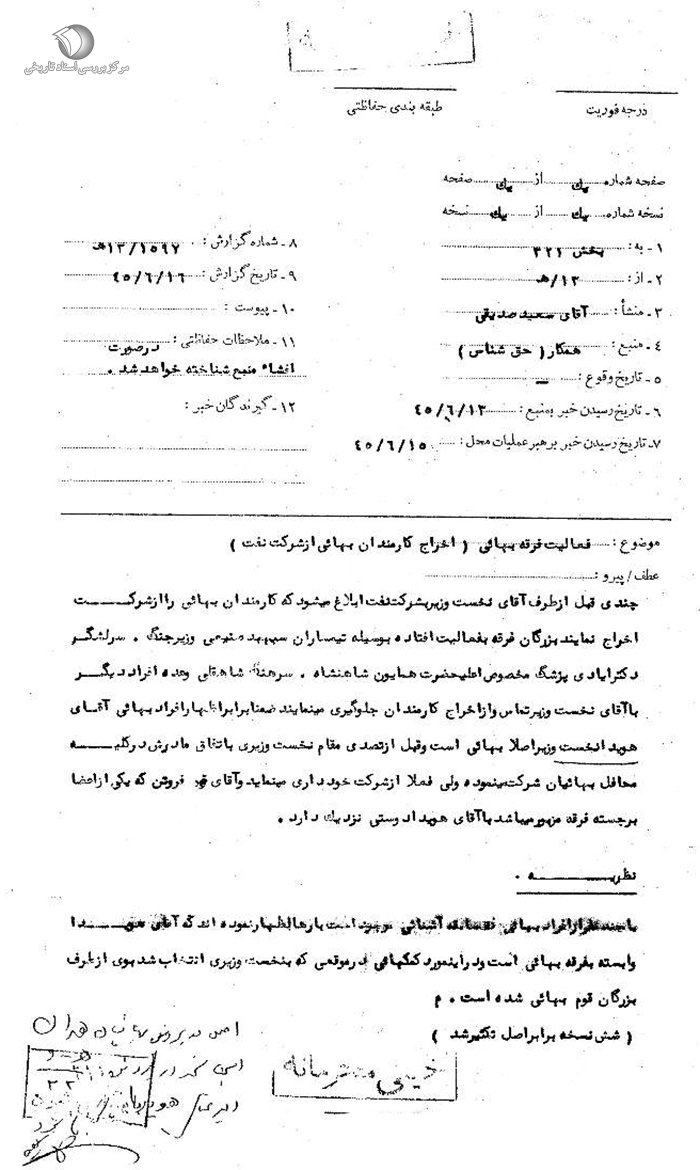 مرکز بررسی اسناد تاریخی
درجه فوریت
طبقه بندی حفاظتی
صفحه شماره یک از یک صفحه
نسخه شماره یک از یک نسخه
۱ - به : بخش ۳۲۱
۲ - از : ۱۳/هـ
۳ - منشأ : آقای سعید صدیقی
۴ - منبع : همکار ( حق شناس )
۵ - تاریخ وقوع : ـ
۶ - تاریخ رسیدن خبر بمنبع : ۴۵/۶/۱۳
۷- تاریخ رسیدن خبر برهبر عملیات محل : ۴۵/۶/۱۵
۸ - شماره گزارش : ۱۳/۱۵۹۷هـ
۹ - تاریخ گزارش : ۴۵/۶/۱۶
۱۰ - پیوست :
۱۱ - ملاحظات حفاظتی : درصورت
افشاء منبع شناخته خواهد شد .
۱۲ - گیرندگان خبر :
موضوع : فعالیت فرقه بهائی ( اخراج کارمندان بهائی ازشرکت نفت )
عطف/ پیرو :
چندی قبل ازطرف آقای نخست وزیربشرکت نفت ابلاغ میشود که کارمندان بهائی را ازشرکــــت
اخراج نمایند بزرگان فرقه بفعالیت افتاده بوسیله تیمساران سپهبد صنیعی وزیرجنگ . سرلشگر
دکترایادی پزشک مخصوص اعلیحضرت همایون شاهنشاه . سرهنگ شاهقلی وعده افراد دیگـــر
باآقای نخست وزیرتماس وازاخراج کارمندان جلوگیری مینمایند ضمنا برابر اظهارافراد بهائی آقـــای
هویدا نخست وزیراصلا بهائی است وقبل ازتصدی مقام نخست وزیری باتفاق مادرش درکلیــــه
محافل بهائیان شرکت مینموده ولی فعلا ازشرکت خود داری مینماید وآقای فروشن که یکی ازاعضا
برجسته فرقه مزبورمیباشد باآقای هویدا دوستی نزدیک دارد .
نظریـــــــــه .
باچند نفرازافراد بهائی که سابقه آشنائی موجود است بارها اظهارنموده اند که آقای هویـــدا
وابسته بفرقه بهائی است ودراینمورد کمکهائی درموقعی که بنخست وزیری انتخاب شد بوی ازطرف
بزرگان قوم بهائی شده است . م
( شش نسخه برابراصل تکثیرشد )
خیلی محرمانه